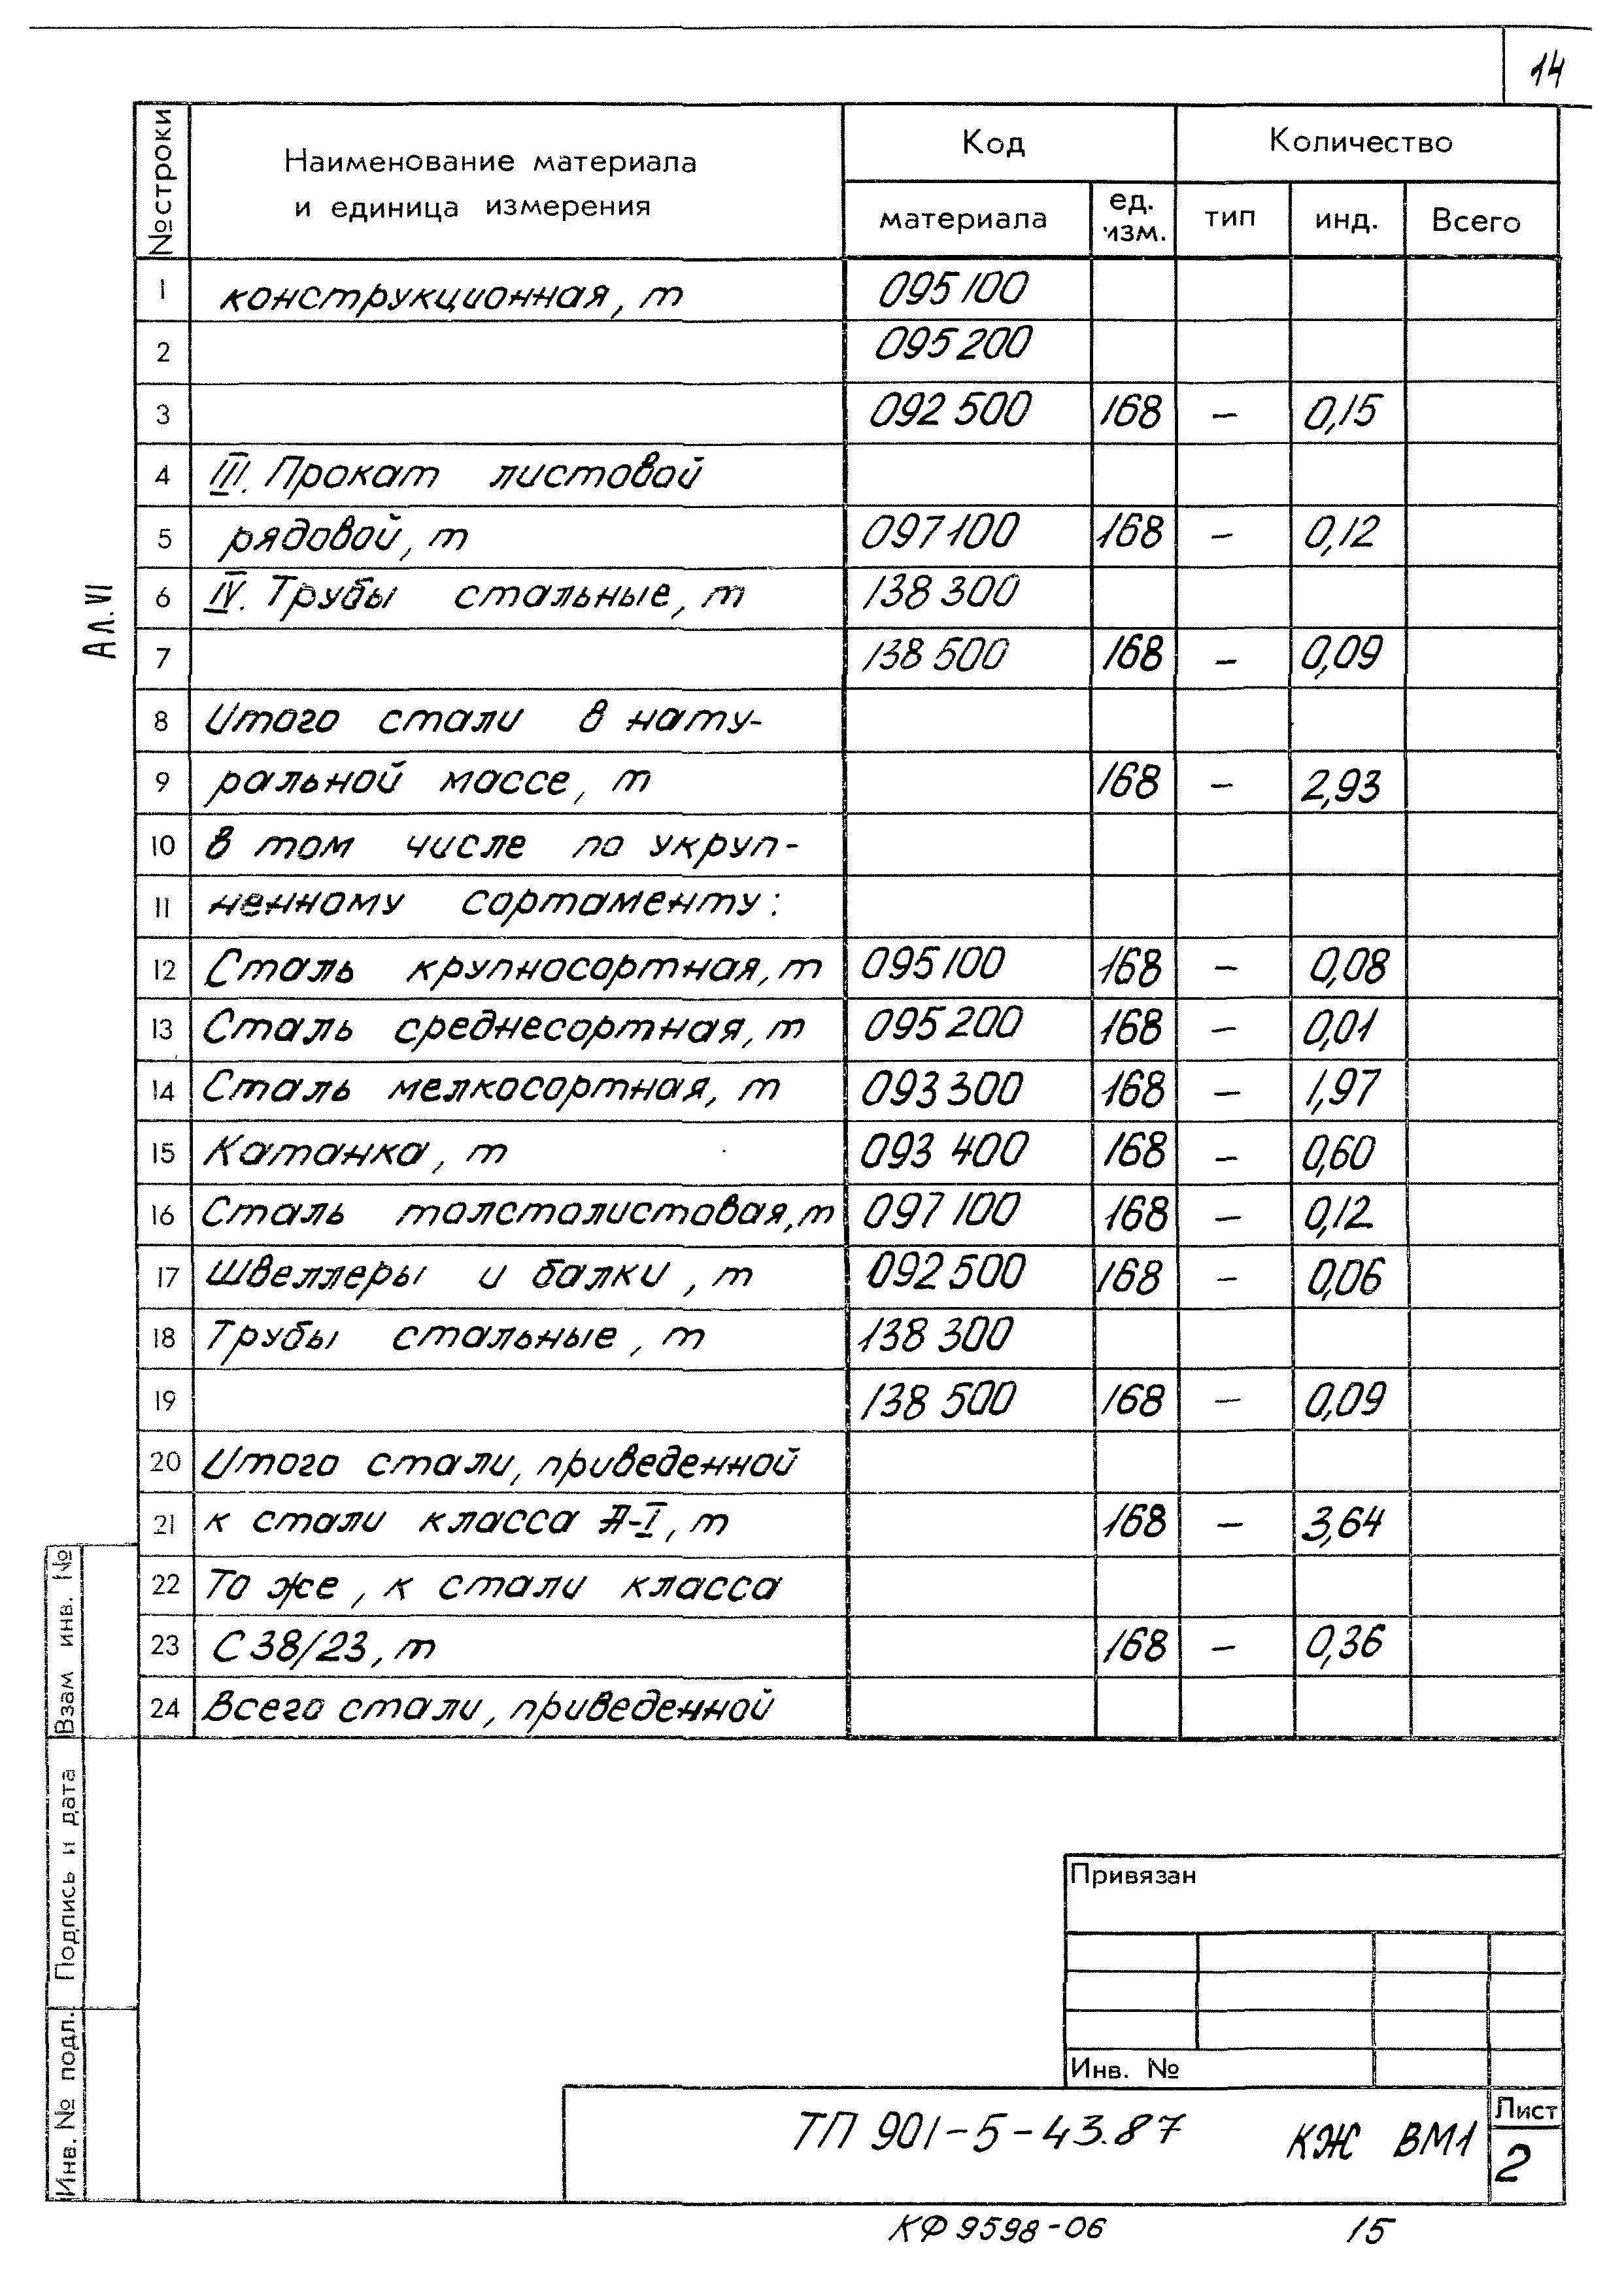 14
№ строки | Наименование материала и единица измерения | Код | Количество
материала | ед. изм. | тип | инд. | Всего
1 | конструкционная, т | 095100
2 | 095200
3 | 092500 | 168 | – | 0,15
4 | III. Прокат листовой
5 | рядовой, т | 097100 | 168 | – | 0,12
6 | IV. Трубы стальные, т | 138300
7 | 138500 | 168 | – | 0,09
8 | Итого стали в нату-
9 | ральной массе, т | 168 | – | 2,93
10 | в том числе по укруп-
11 | ненному сортаменту:
12 | Сталь крупносортная, т | 095100 | 168 | – | 0,08
13 | Сталь среднесортная, т | 095200 | 168 | – | 0,01
14 | Сталь мелкосортная, т | 093300 | 168 | – | 1,97
15 | Катанка, т | 093400 | 168 | – | 0,60
16 | Сталь толстолистовая, т | 097100 | 168 | – | 0,12
17 | Швеллеры и балки, т | 092500 | 168 | – | 0,06
18 | Трубы стальные, т | 138300
19 | 138500 | 168 | – | 0,09
20 | Итого стали, приведенной
21 | к стали класса А-I, т | 168 | – | 3,64
22 | То же, к стали класса
23 | С 38/23, т | 168 | – | 0,36
24 | Всего стали, приведенной
Ал. VI
Взам инв. №
Подпись и дата
Инв. № подл.
Привязан
Инв. №
ТП 901-5-43.87 КЖ ВМ1
Лист
2
КФ 9598-06 15